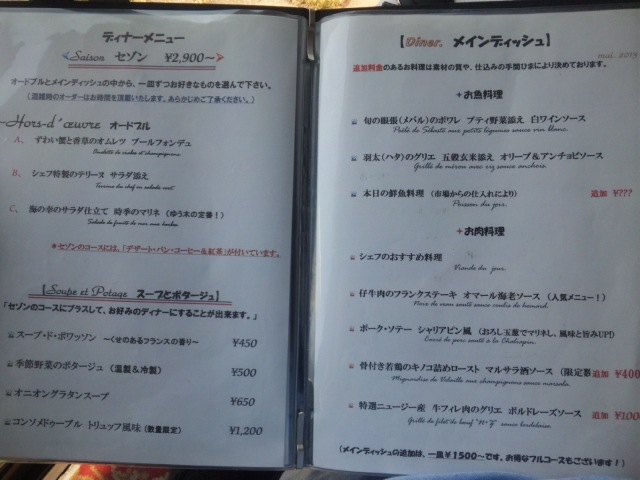 ディナーメニュー
Saison セゾン ¥2,900～
オードブルとメインディッシュの中から、一皿ずつお好きなものを選んで下さい。
(混雑時のオーダーはお時間を頂戴いたします。あらかじめご了承ください。)
～Hors-d'œuvre オードブル
A、 ずわい蟹と香草のオムレツ ブールフォンデュ
B、 シェフ特製のテリーヌ サラダ添え
Terrine du chef en salade vert.
C、 海の幸のサラダ仕立て 時季のマリネ (ゆう木の定番！)
Salade de fruits de mer aux herbes.
＊セゾンのコースには、「デザート・パン・コーヒー＆紅茶」が付いています。
【Soupe et Potage スープとポタージュ】
「セゾンのコースにプラスして、お好みのディナーにすることが出来ます。」
スープ・ド・ポワッソン ～くせのあるフランスの香り～ ¥450
季節野菜のポタージュ (温製＆冷製) ¥500
オニオングラタンスープ ¥650
コンソメドゥーブル トリュッフ風味 (数量限定) ¥1,200
【Diner. メインディッシュ】
mai. 2019
追加料金のあるお料理は素材の質や、仕込みの手間ひまにより決めております。
+お魚料理
旬の眼張(メバル)のポワレ プティ野菜添え 白ワインソース
Poêlé de Sébaste aux petits légumes sauce vin blanc.
羽太(ハタ)のグリエ 五穀玄米添え オリーブ＆アンチョビソース
Grillé de mérou avec riz sauce anchois.
本日の鮮魚料理 (市場からの仕入れにより) 追加 ¥???
Poisson du jour.
+お肉料理
シェフのおすすめ料理
Viande du jour.
仔牛肉のフランクステーキ オマール海老ソース (人気メニュー！)
ポーク・ソテー シャリアピン風 (おろし玉葱でマリネし、風味と旨みUP!)
骨付き若鶏のキノコ詰めロースト マルサラ酒ソース (限定 追加 ¥400
Mignardise de Volaille aux champignons sauce marsala.
特選ニュージー産 牛フィレ肉のグリエ ボルドレーズソース 追加 ¥100
Grillé de filet de bœuf "N・Z" sauce bordelaise.
(メインディッシュの追加は、一皿¥1500～です。お得なフルコースもございます！)